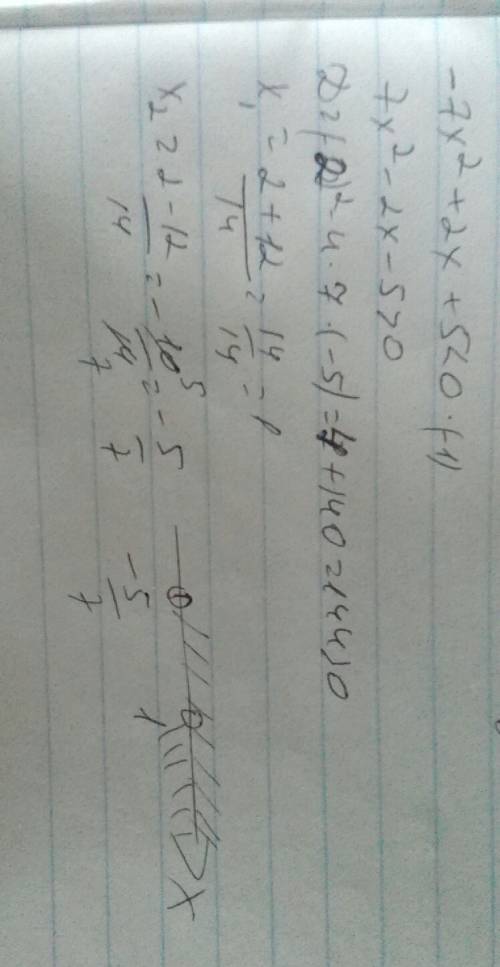 -7x² + 2x + 5 < 0 · (-1)
7x² - 2x - 5 > 0
D = (-2)² - 4 · 7 · (-5) = 4 + 140 = 144 > 0
x₁ = 2 + 12 / 14 = 14 / 14 = 1
x₂ = 2 - 12 / 14 = - 10 5 / 14 7 = - 5 / 7
-5 / 7 1 x